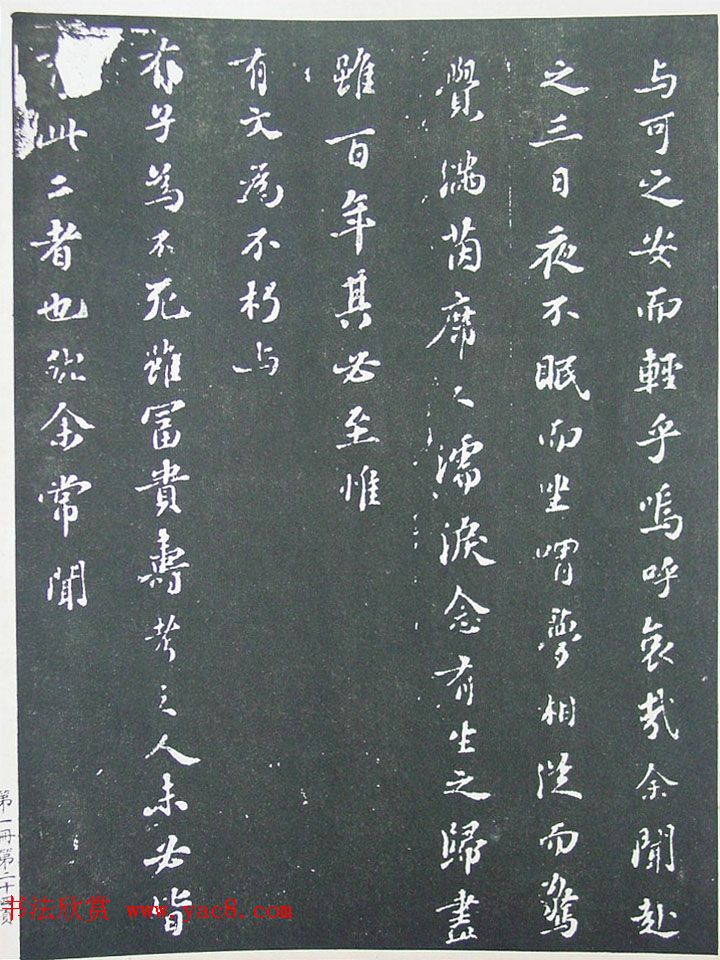 与可之安而輕乎嗚呼哀哉余聞赴
之三日夜不眠而坐喟夢相從而驚
覺滿茵席之濡淚念有生之歸盡
雖百年其必至惟
有文為不朽与
有子為不死雖冨貴壽考之人未必皆
有此二者也然余常聞
第一冊第二十頁
书法欣赏 www.yac8.com